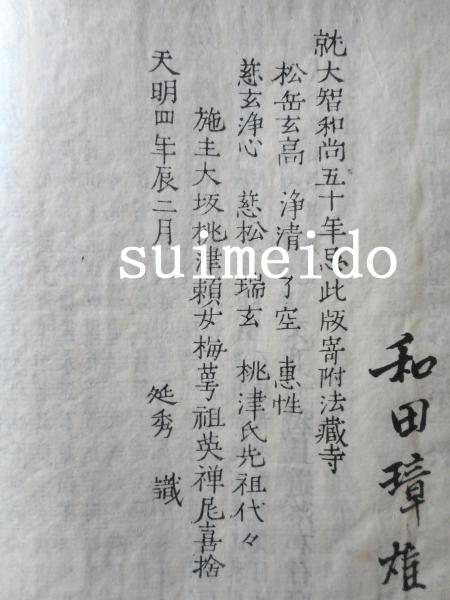 就大智和尚五十年忌此版寄附法藏寺
松岳玄高 浄清 了空 惠性
慈玄浄心 慈松 瑞玄 桃津氏先祖代々
施主大坂桃津頼女梅萼祖英禅尼喜捨
天明四年辰二月 延秀 識
和田璋雄
suimeido